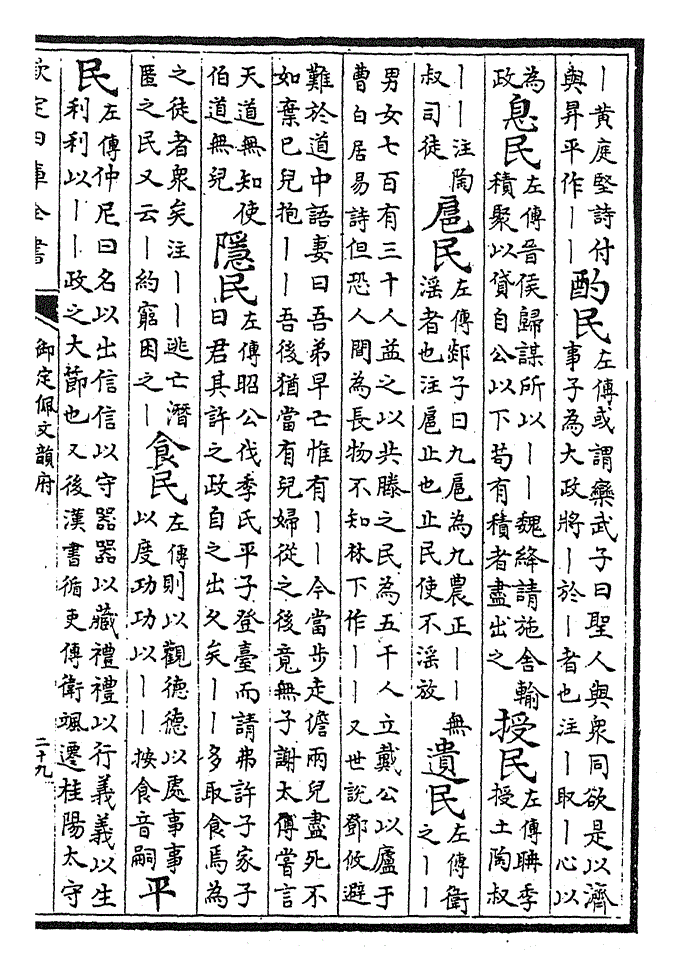 丨黄庭堅詩付
與昇平作丨丨
酌民
左傳或謂欒武子曰聖人與衆同欲是以濟
事子為大政將丨於丨者也注丨取丨心以
為
政
息民
左傳晉侯歸謀所以丨丨魏絳請施舍輸
積聚以貸自公以下苟有積者盡出之
授民
左傳聃季
授土陶叔
丨丨注陶
叔司徒
扈民
左傳郯子曰九扈為九農正丨丨無
滛者也注扈止也止民使不滛放
遺民
左傳衛
之丨丨
男女七百有三十人益之以共滕之民為五千人立戴公以廬于
曹白居易詩但恐人間為長物不知林下作丨丨又世說鄧攸避
難於道中語妻曰吾弟早亡惟有丨丨今當步走儋兩兒盡死不
如棄已兒抱丨丨吾後猶當有兒婦從之後竟無子謝太傅嘗言
天道無知使
伯道無兒
隱民
左傳昭公伐季氏平子登臺而請弗許子家子
曰君其許之政自之出久矣丨丨多取食焉為
之徒者衆矣注丨丨逃亡潛
匿之民又云丨約窮困之丨
食民
左傳則以觀德德以處事事
以度功功以丨丨按食音嗣
平
民
左傳仲尼曰名以出信信以守器器以藏禮禮以行義義以生
利利以丨丨政之大節也又後漢書循吏傳衛颯遷桂陽太守
欽定四庫全書
御定佩文韻府
二十九